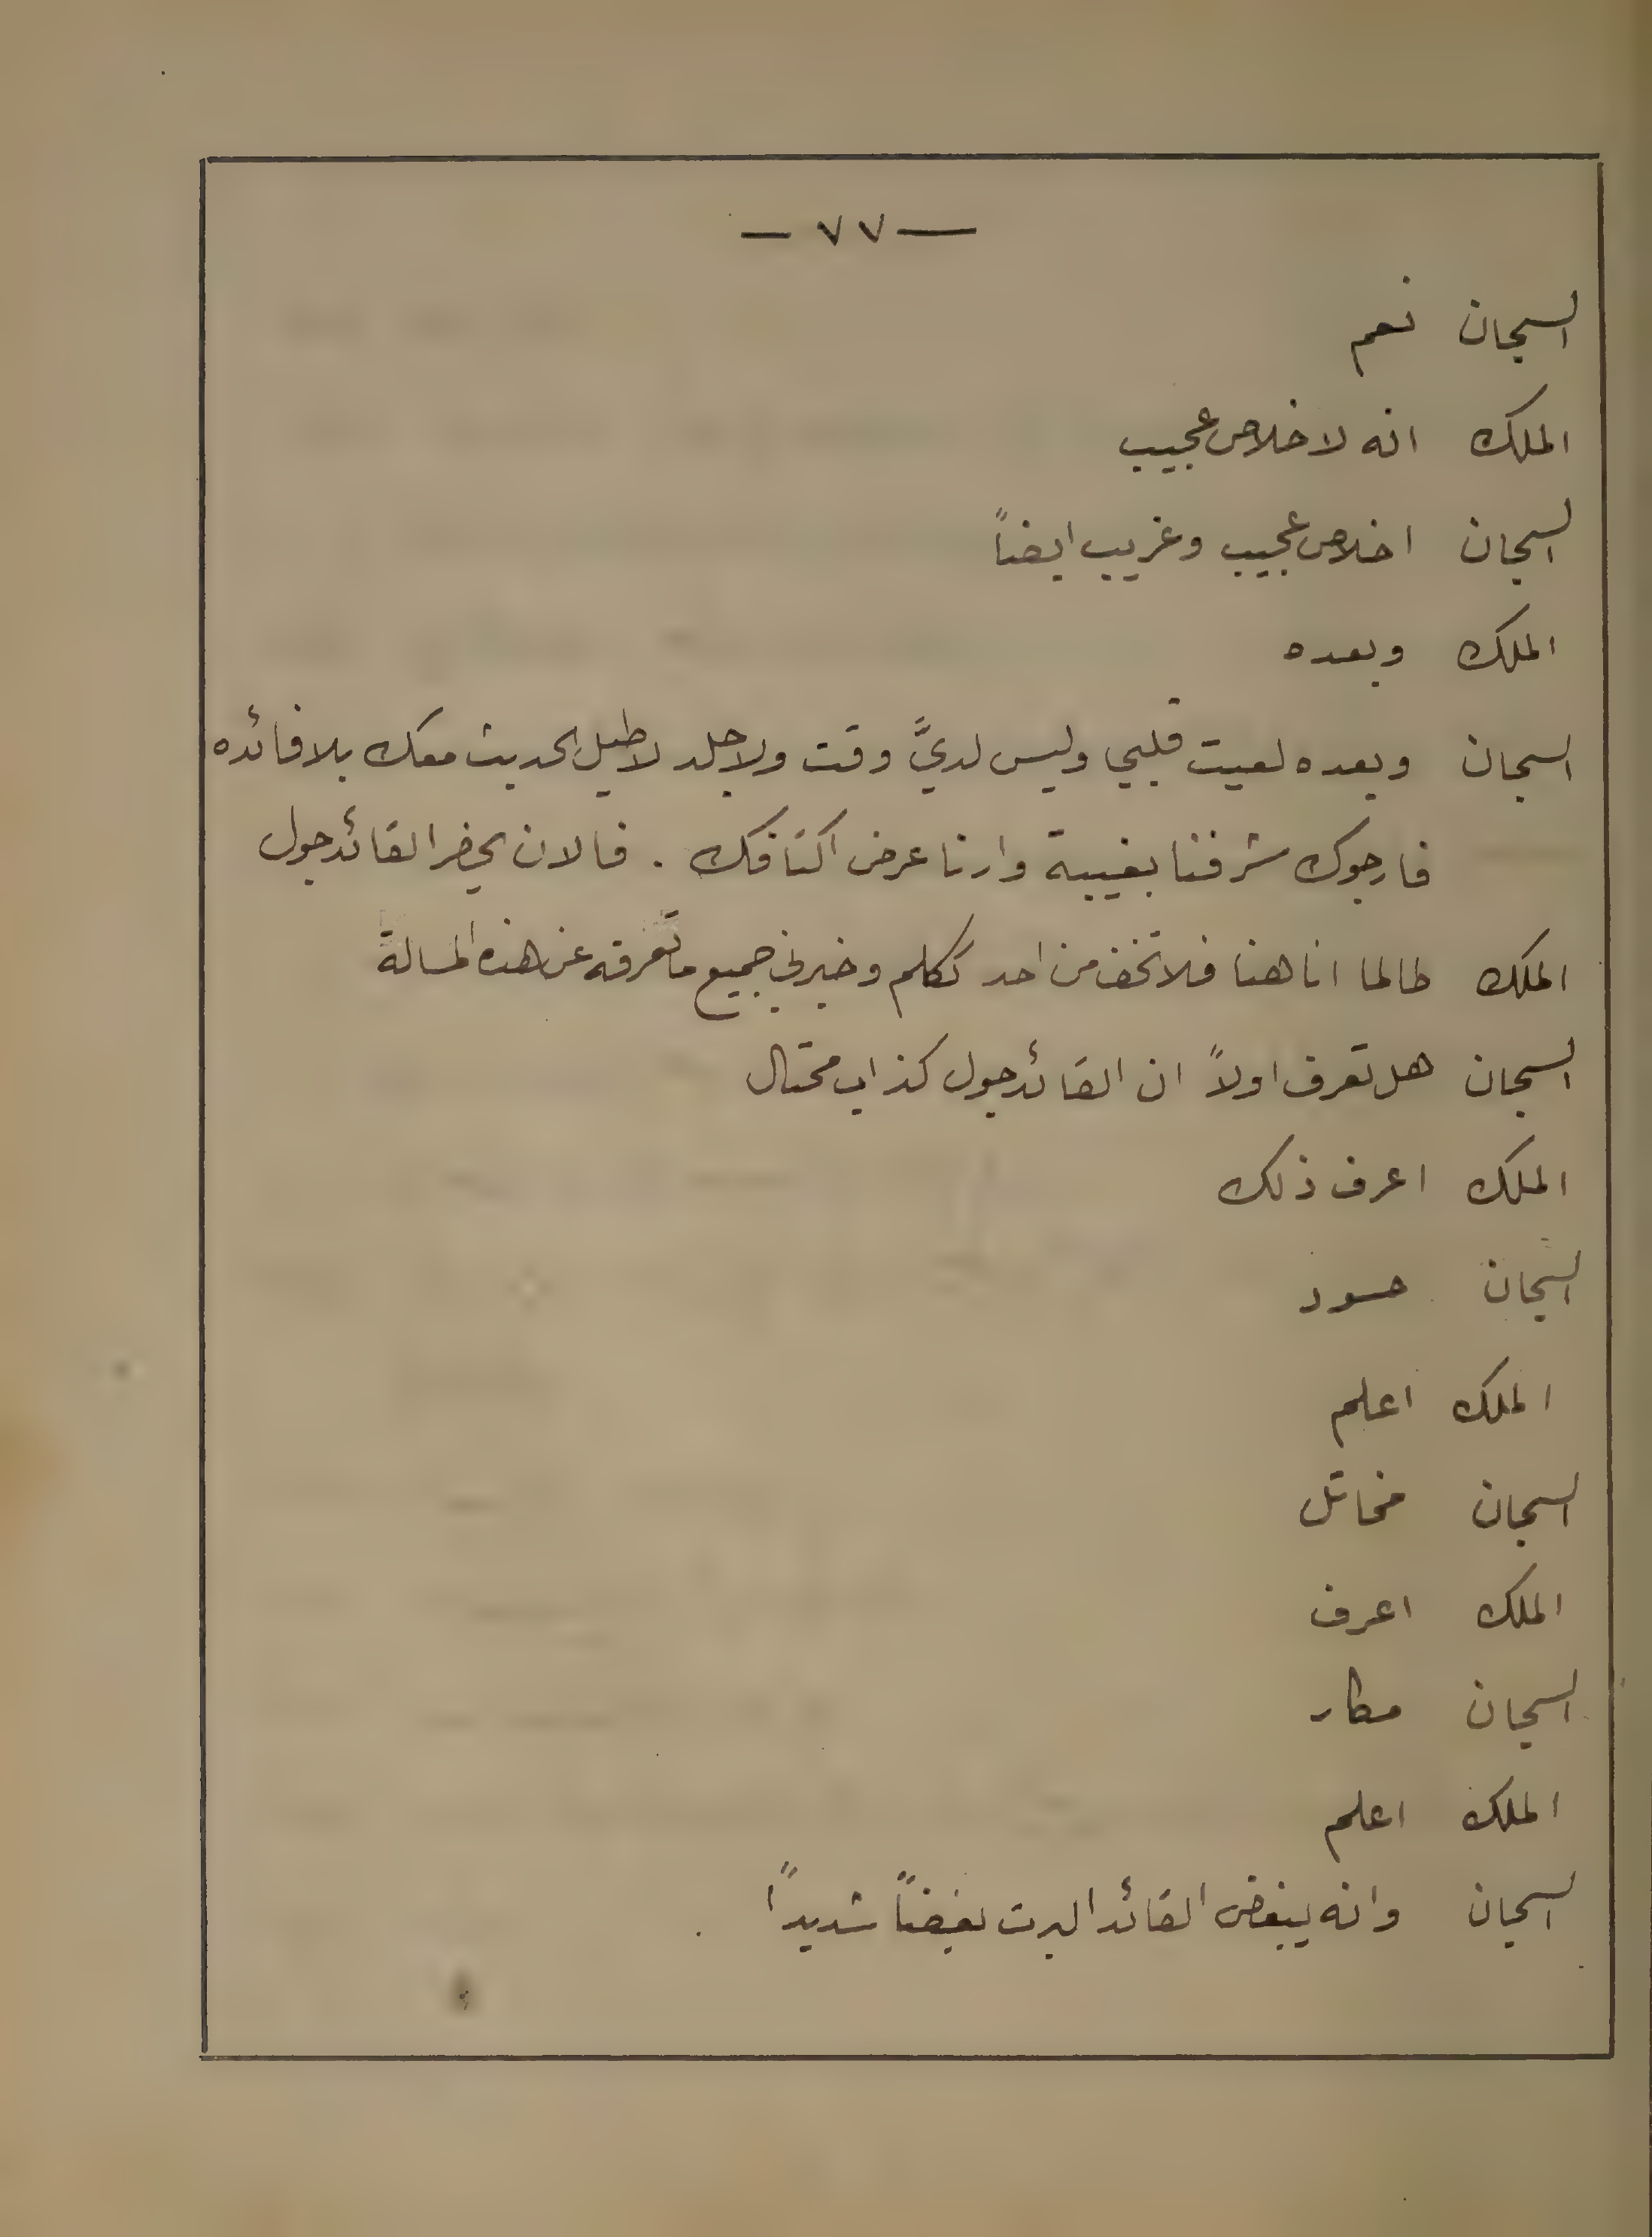 — ٧٧ —
السجان نعم
الملك انه لاخلاص عجيب
السجان اخلاص عجيب وغريب ايضاً
الملك وبعده
السجان وبعده لعيت قلبي وليس لديَّ وقت ولاجلد لاطيل الحديث معك بلا فائده
فارجوك شرفنا بغيبة وارنا عرض اكتافك . فالان يحضر القائد جول
الملك طالما انا هنا فلا تخف من احد تكلم وخبرني جميع ما تعرفه عن هذه المسالة
السجان هل تعرف اولاً ان القائد جول كذاب محتال
الملك اعرف ذلك
السجان حسود
الملك اعلم
السجان مخاتل
الملك اعرف
السجان مكار
الملك اعلم
السجان وانه يبغض القائد البرت بغضاً شديداً .